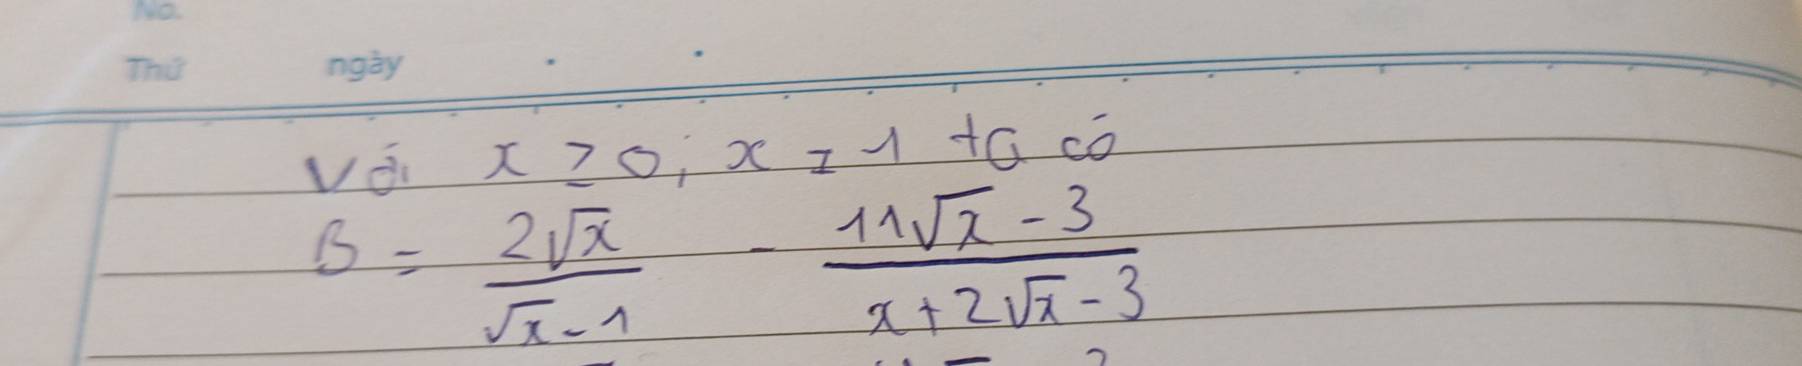 No.
Thứ ngày
Với x ≥ 0; x ≠ 1 ta có
B = \frac{2\sqrt{x}}{\sqrt{x}-1} - \frac{11\sqrt{x}-3}{x+2\sqrt{x}-3}